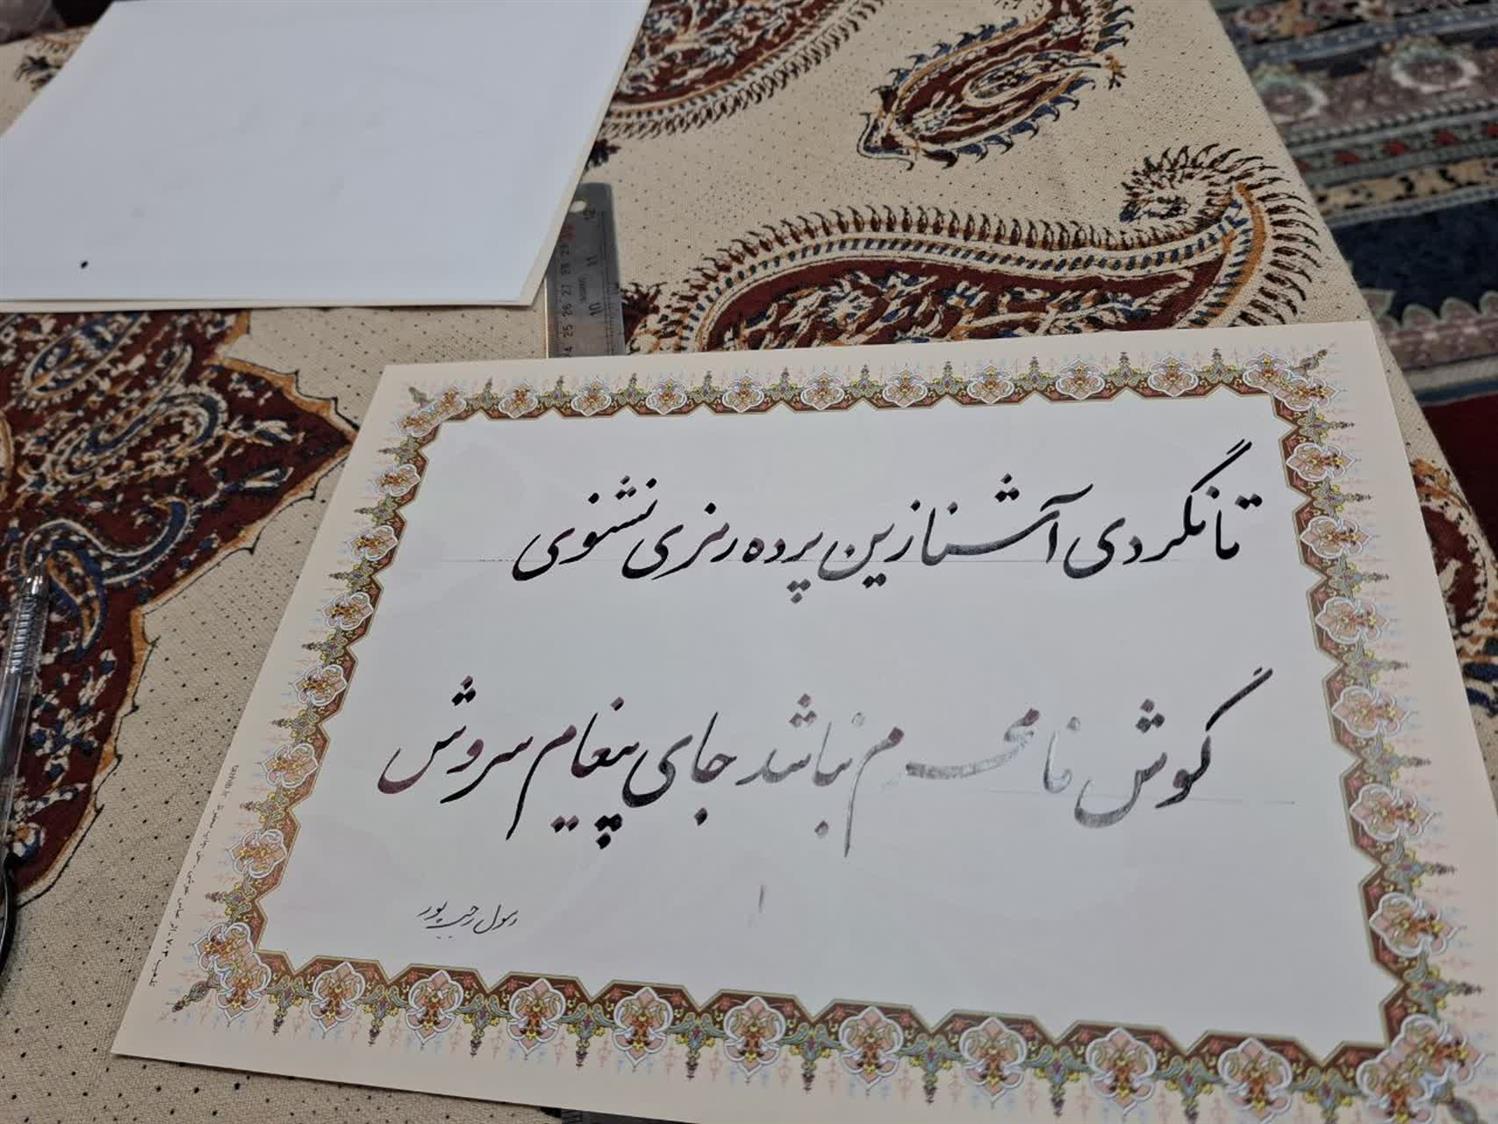 تا نگردی آشنا زین پرده رمزی نشنوی
گوش نامحرم نباشد جای پیغام سروش
رسول رجب پور